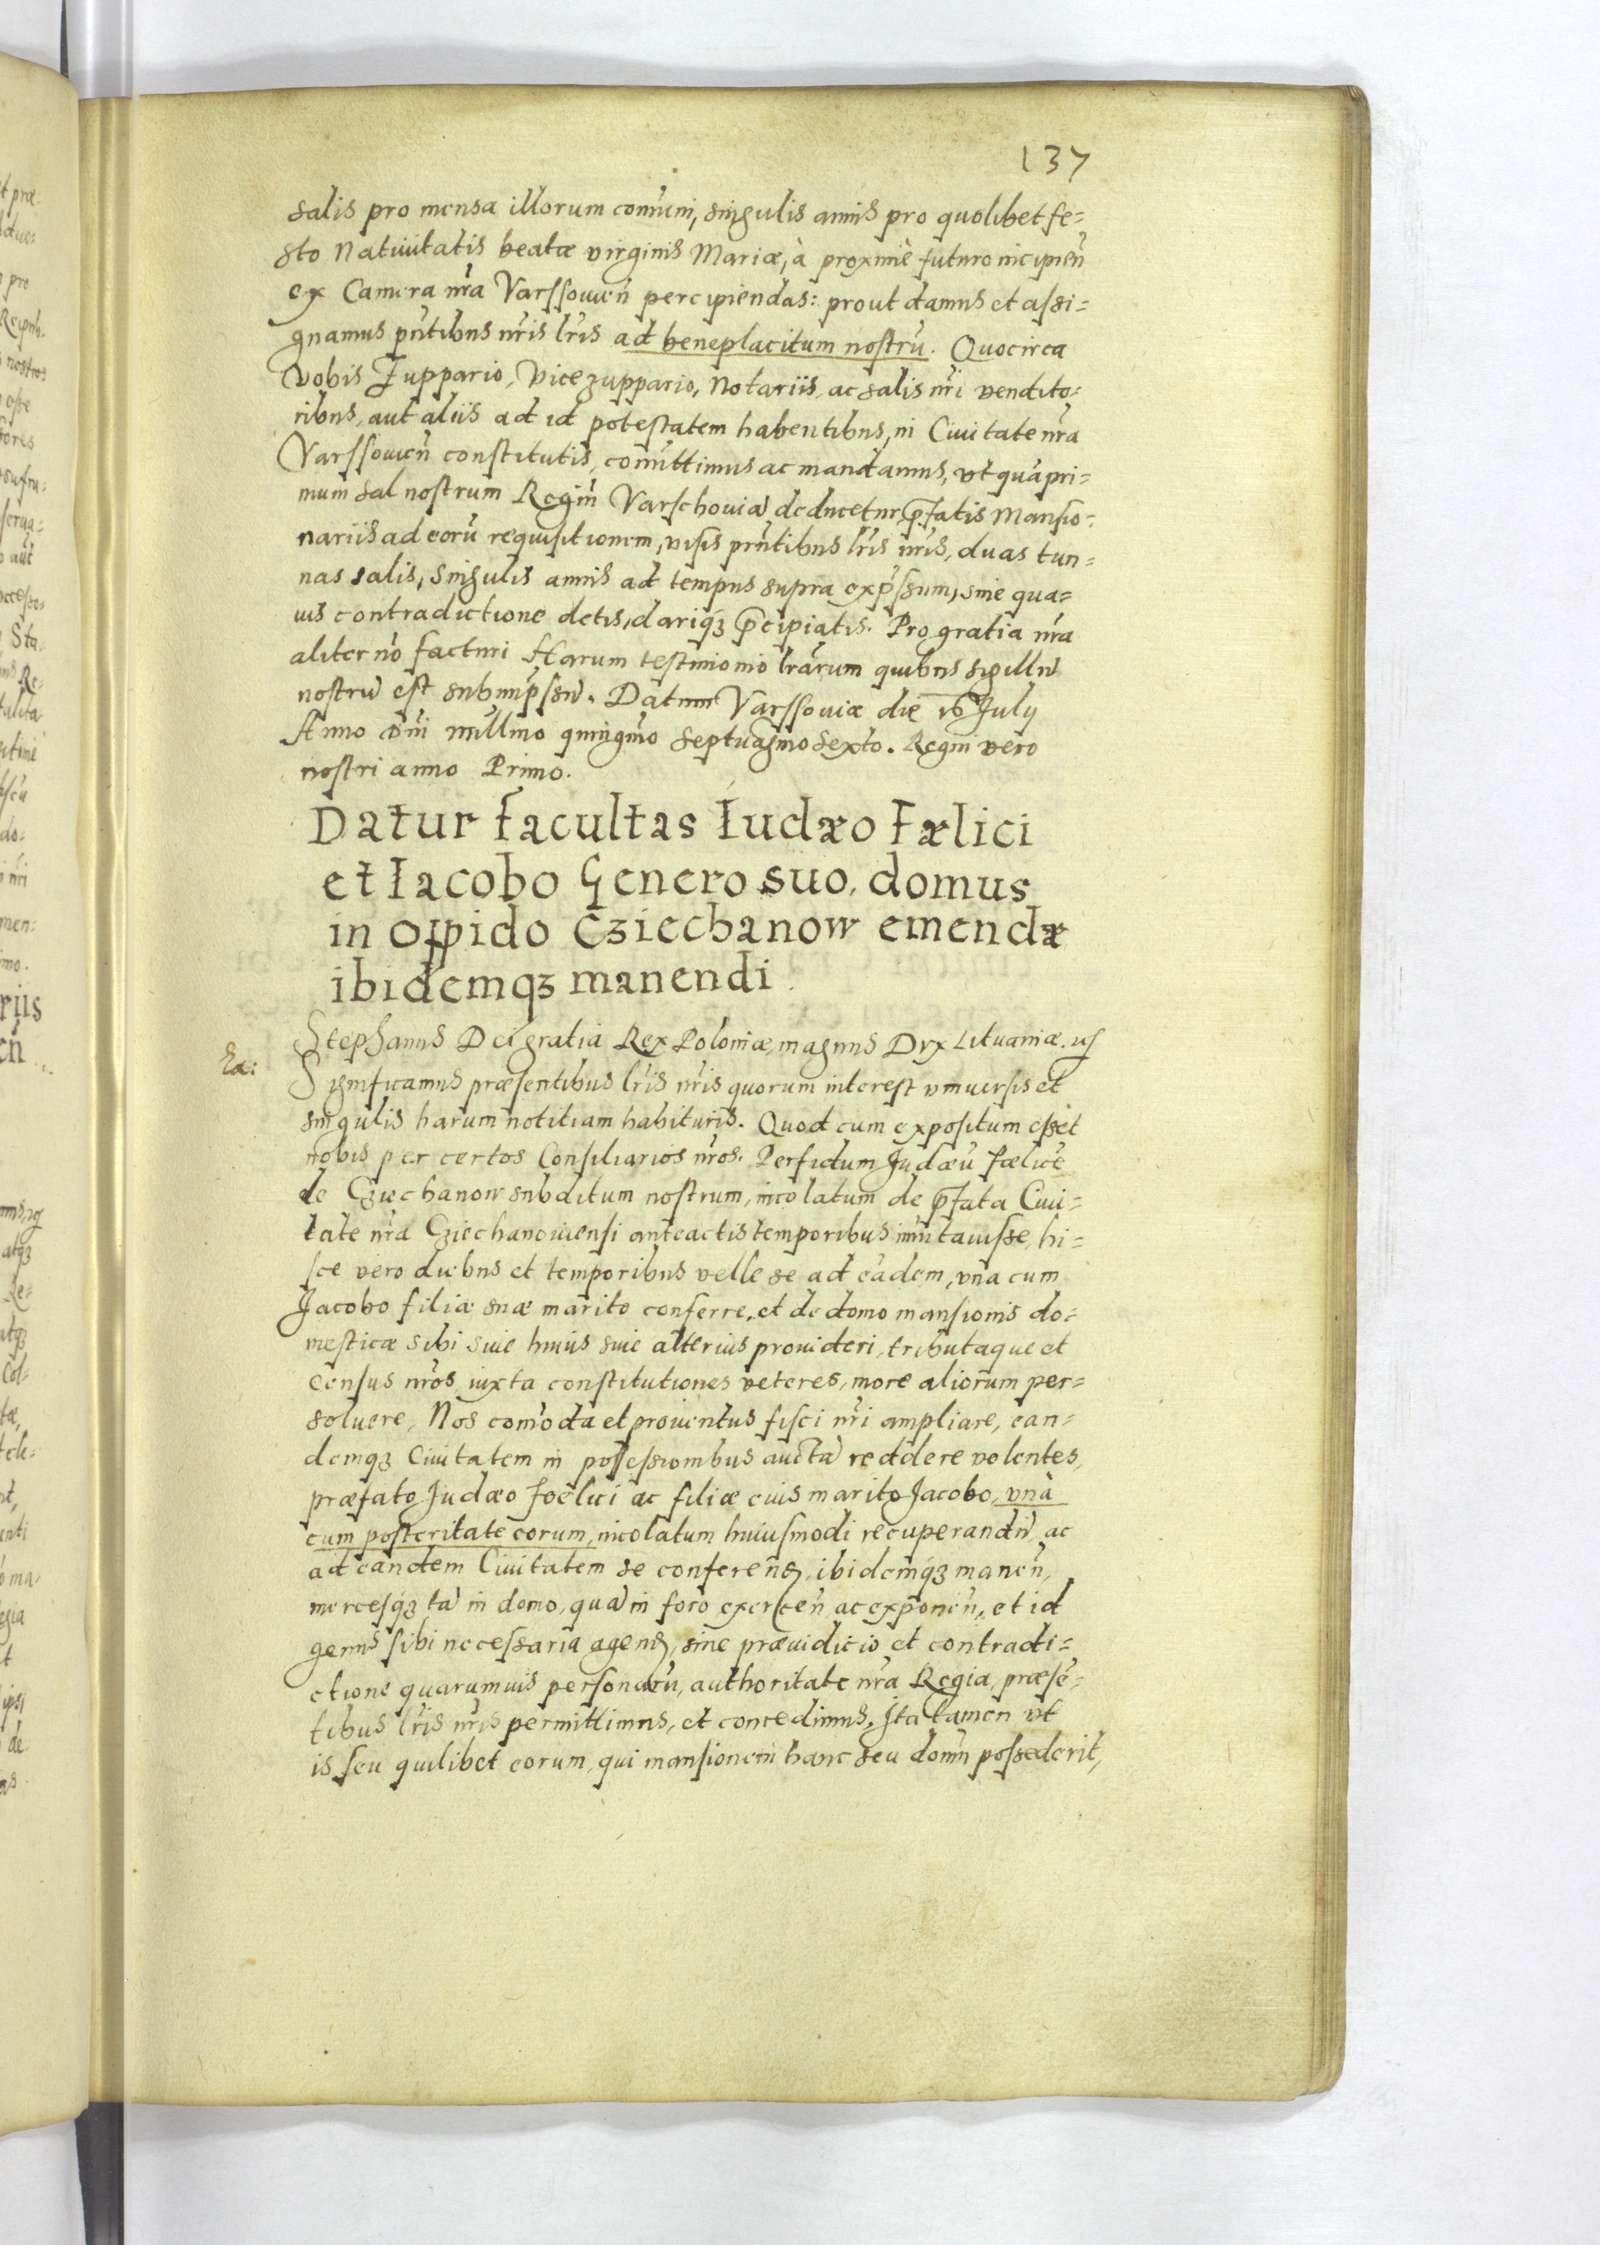 137
salis pro mensa illorum com̃uni, singulis annis pro quolibet fe=
sto Natiuitatis beatæ virginis Mariæ, à proximè futuro incipien̄
ex Camera nr̃a Varssouien̄ percipiendas: prout damus et assi=
gnamus pñtibus nr̃is lr̃is ad beneplacitum nostrū. Quocirca
Vobis Zuppario, Vicezuppario, Notariis, ac salis nr̃i vendito=
ribus, aut aliis ad id potestatem habentibus, in Ciuitate nr̃a
Varssouien̄ constitutis, com̃ittimus ac mandamus, vt quāpri=
mum sal nostrum Regiū Varschouiā deducetur, p̃fatis Mansio=
nariis ad eorū requisitionem, visis pñtibus lr̃is nr̃is, duas tun=
nas salis, singulis annis ad tempus supra exp̃ssum, sine qua=
uis contradictione detis, dariq₃ p̃cipiatis. Pro gratia nr̃a
aliter nō facturi Harum testimonio lr̃arum quibus sigillū
nostrū est subimp̃ssū. Datum Varssouiæ die 16 July
Anno Dñi millmo quingm̃o septuagmo sexto. Regni vero
nostri anno Primo.
Datur facultas Iudæo Fælici
et Iacobo Genero suo, domus
in oppido Cziechanow emendæ
ibidemq₃ manendi.
Ra:
Stephanus Dei gratia Rex Poloniæ, magnus Dux Lituaniæ. ꝛc
Significamus præsentibus lr̃is nr̃is quorum interest vniuersis et
singulis harum notitiam habituris. Quod cum expositum esset
nobis per certos Consiliarios nr̃os. Perfidum Judæū Fælicē
de Cziechanow subditum nostrum, incolatum de p̃fata Ciui=
tate nr̃a Cziechanouiensi anteactis temporibus im̃utauisse, hi=
sce vero diebus et temporibus velle se ad eādem, vna cum
Jacobo filiæ suæ marito conferre, et de domo mansionis do=
mesticæ sibi siue huius siue alterius prouideri, tributaque et
census nr̃os iuxta constitutiones veteres, more aliorum per=
soluere, Nos com̃oda et prouentus fisci nr̃i ampliare, ean=
demq₃ Ciuitatem in possessionibus auctā reddere volentes,
præfato Judæo Foelici ac filiæ eius marito Jacobo, vnà
cum posteritate eorum, incolatum huiusmodi recuperandū, ac
ad eandem Ciuitatem se conferen̄, ibidemq₃ manen̄,
mercesq₃ tā in domo, quā in foro exercen̄ ac exponen̄, et id
genus sibi necessaria agen̄, sine præiudicio et contradi=
ctione quarumuis personarū, authoritate nr̃a Regia, præsē=
tibus lr̃is nr̃is permittimus, et concedimus. Ita tamen vt
is seu quilibet eorum, qui mansionem hanc seu domū possederit,